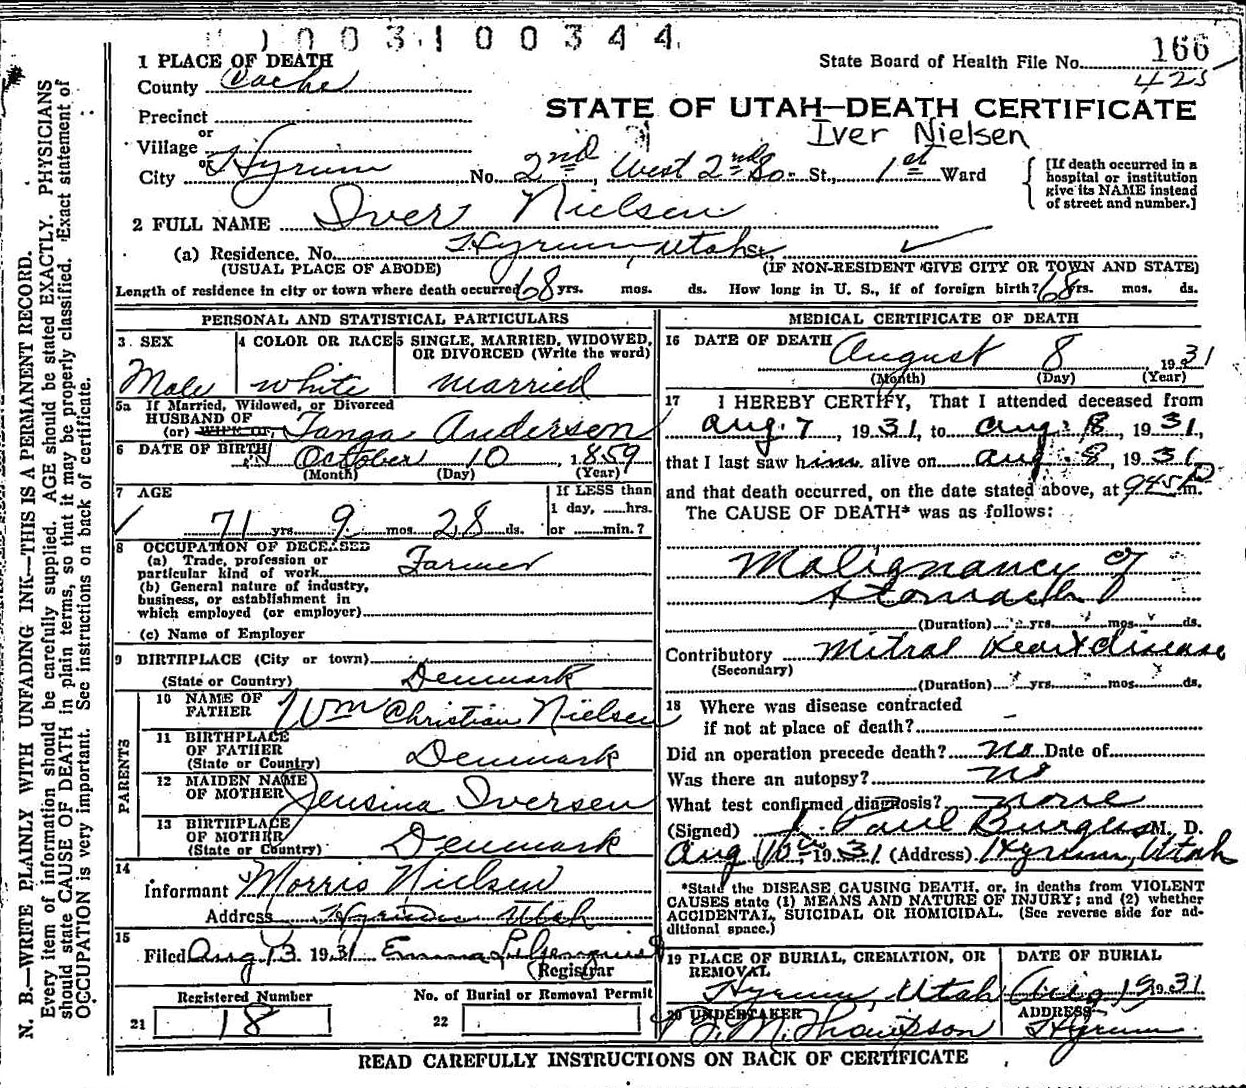 1003100344
1 PLACE OF DEATH
State Board of Health File No. 166
County Cache
425
STATE OF UTAH—DEATH CERTIFICATE
Precinct
Iver Nielsen
or
Village
or
City Hyrum No. 2nd West 2nd So. St., 1st Ward
[If death occurred in a
hospital or institution
give its NAME instead
of street and number.]
2 FULL NAME Iver Nielsen
(a) Residence. No. Hyrum, Utah St.,
(USUAL PLACE OF ABODE) (IF NON-RESIDENT GIVE CITY OR TOWN AND STATE)
Length of residence in city or town where death occurred 68 yrs. mos. ds. How long in U. S., if of foreign birth? 68 yrs. mos. ds.
PERSONAL AND STATISTICAL PARTICULARS
3 SEX 4 COLOR OR RACE 5 SINGLE, MARRIED, WIDOWED,
OR DIVORCED (Write the word)
Male white married
5a If Married, Widowed, or Divorced
HUSBAND OF
(or) WIFE OF Andersen
6 DATE OF BIRTH October 10, 1859
(Month) (Day) (Year)
7 AGE If LESS than
1 day, hrs.
71 yrs. 9 mos. 28 ds. or min.?
8 OCCUPATION OF DECEASED
(a) Trade, profession or
particular kind of work Farmer
(b) General nature of industry,
business, or establishment in
which employed (or employer)
(c) Name of Employer
9 BIRTHPLACE (City or town)
(State or Country) Denmark
PARENTS
10 NAME OF
FATHER Wm Christian Nielsen
11 BIRTHPLACE
OF FATHER Denmark
(State or Country)
12 MAIDEN NAME
OF MOTHER Jensina Iversen
13 BIRTHPLACE
OF MOTHER Denmark
(State or Country)
14
Informant Morris Nielsen
Address Hyrum Utah
15
Filed Aug 13 1931 Emma
Registrar
Registered Number No. of Burial or Removal Permit
21 18 22
MEDICAL CERTIFICATE OF DEATH
16 DATE OF DEATH August 8 1931
(Month) (Day) (Year)
17 I HEREBY CERTIFY, That I attended deceased from
Aug. 7, 1931, to Aug. 8, 1931,
that I last saw him alive on Aug. 8, 1931
and that death occurred, on the date stated above, at 945 P m.
The CAUSE OF DEATH* was as follows:
Malignancy of
stomach
(Duration) yrs. mos. ds.
Contributory Mitral Heart disease
(Secondary)
(Duration) yrs. mos. ds.
18 Where was disease contracted
if not at place of death? —
Did an operation precede death? no Date of
Was there an autopsy? no
What test confirmed diagnosis? none
(Signed) J. Paul Burgess M. D.
Aug 10th 1931 (Address) Hyrum, Utah
*State the DISEASE CAUSING DEATH, or, in deaths from VIOLENT
CAUSES state (1) MEANS AND NATURE OF INJURY; and (2) whether
ACCIDENTAL, SUICIDAL OR HOMICIDAL. (See reverse side for ad-
ditional space.)
19 PLACE OF BURIAL, CREMATION, OR
REMOVAL
Hyrum, Utah
DATE OF BURIAL
Aug 1931
20 UNDERTAKER
M. Thompson
ADDRESS
Hyrum
READ CAREFULLY INSTRUCTIONS ON BACK OF CERTIFICATE
N. B.—WRITE PLAINLY WITH UNFADING INK—THIS IS A PERMANENT RECORD.
Every item of information should be carefully supplied. AGE should be stated EXACTLY. PHYSICIANS
should state CAUSE OF DEATH in plain terms, so that it may be properly classified. Exact statement of
OCCUPATION is very important. See instructions on back of certificate.